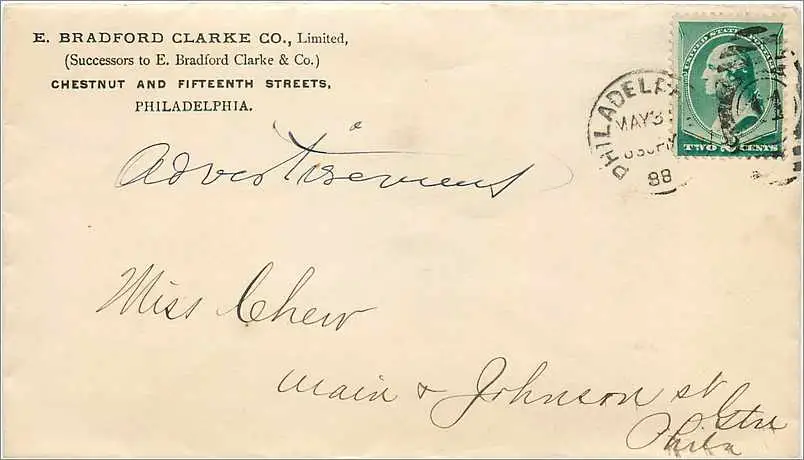 E. BRADFORD CLARKE CO., Limited,
(Successors to E. Bradford Clarke & Co.)
CHESTNUT AND FIFTEENTH STREETS,
PHILADELPHIA.
UNITED STATES POSTAGE
TWO CENTS
PHILADELP
MAY 3
630PM
88
Advertisement
Miss Chew
Main & Johnson st
Gtn
Phila